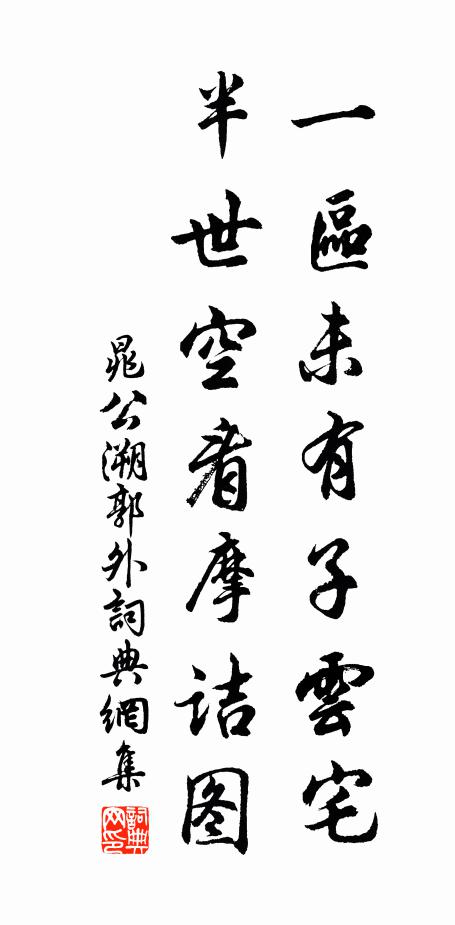 一區未有子雲宅
半世空看摩詰图
晁公溯郭外詞典網集
詞典网印